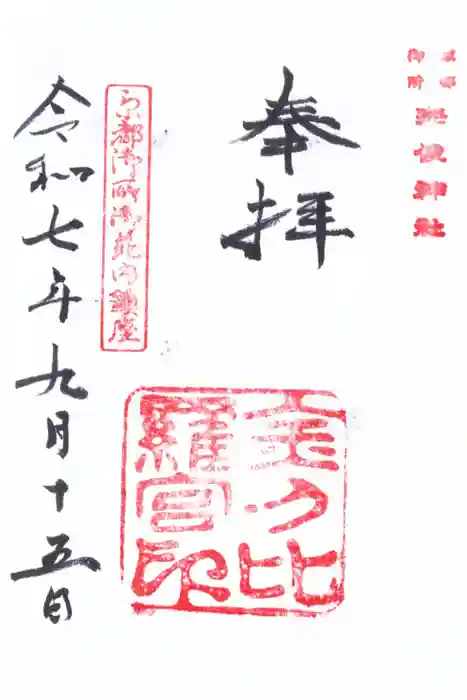 京都
御所
宗像神社
奉拝
金刀比
羅宮印
京都御所御苑内鎮座
令和七年九月十五日